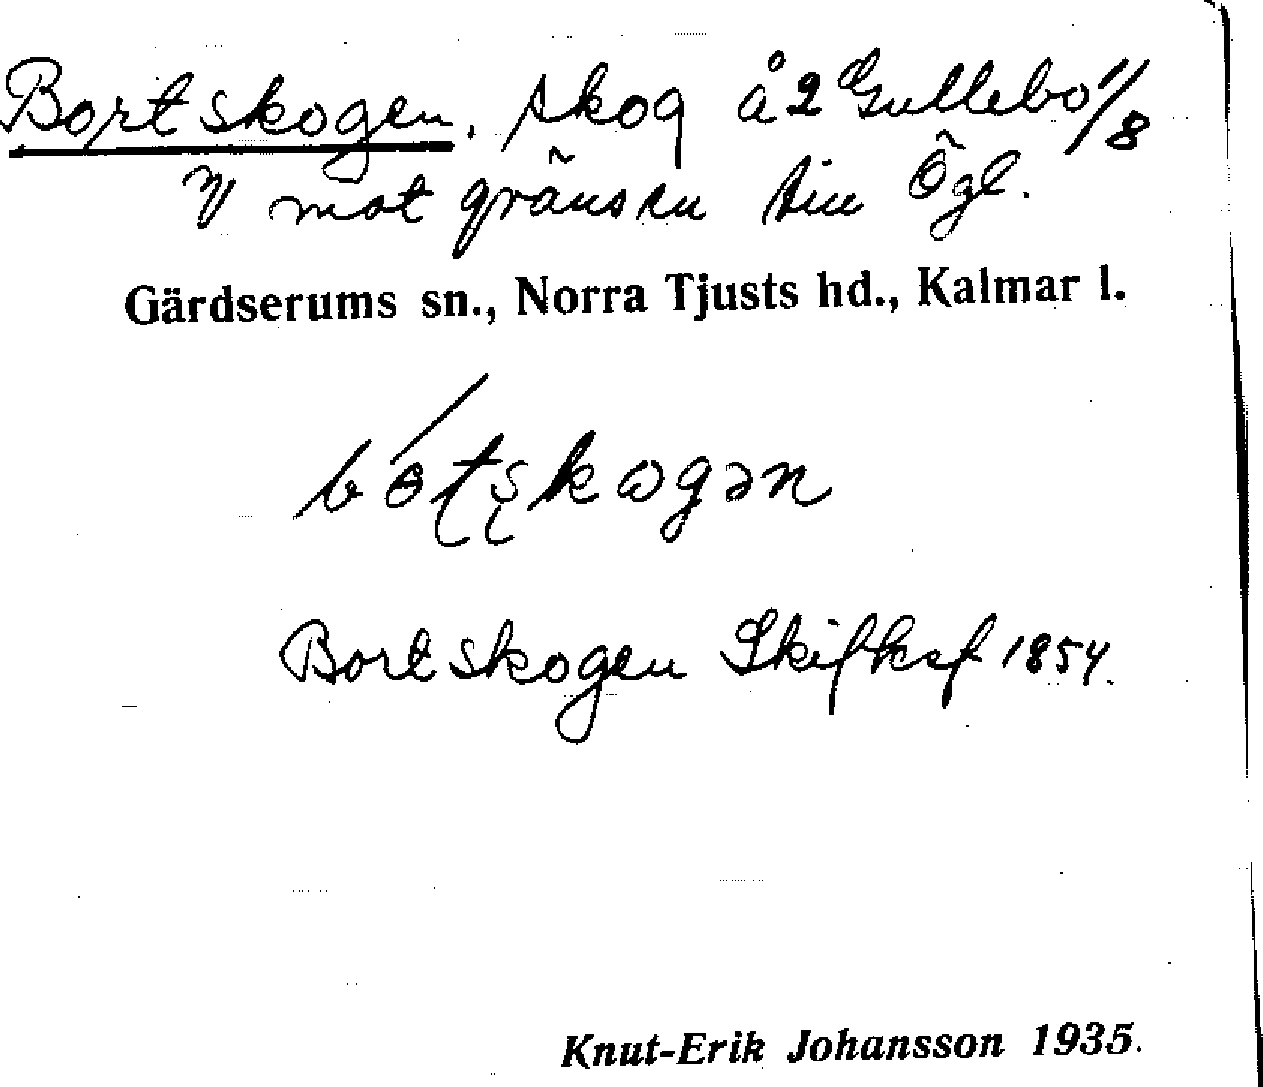 Bortskogen. skog å 2 Gullebo 1/8
mot gränsen till Ögl.
Gärdserums sn., Norra Tjusts hd., Kalmar l.
Bortskogen Skifksf 1854.
Knut-Erik Johansson 1935.